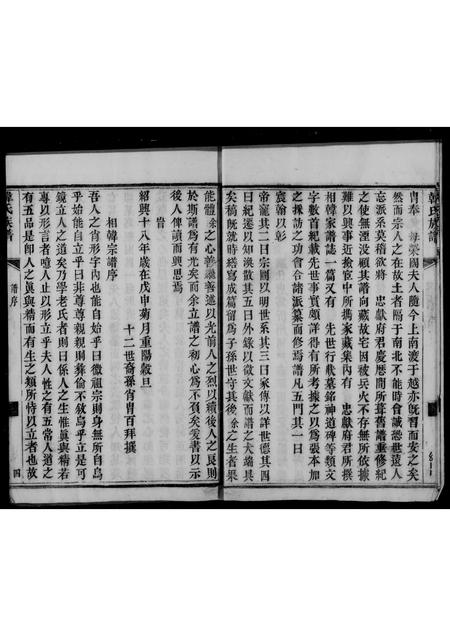 冑奉 母榮國夫人隨今上南渡于越亦旣習而安之矣
然而宗人之在故土者隔于南北不能時會誠恐世遠人
忘派系莫稽欲將 忠獻府君慶曆間所葺舊譜重修紀
之使無湮沒顧其譜向藏故宅因被兵火不存無所依據
難以興事近於宦中所攜家藏集內有 忠獻府君所撰
相韓家譜誌一篇又有 先世行狀墓銘神道碑等類文
字數首紀載先世事實頗詳得有所考據之以爲張本加
之採訪之功會合諸派纂而修焉譜凡五門其一曰
宸翰以彰
帝寵其二曰宗圖以明世系其三曰家傳以詳世德其四
曰紀遷以知渙散其五曰外錄以徵文獻而譜之大端具
矣稿旣就時繕寫成篇留爲子孫世守其後余之生者果
能體余之心善繼善述以光前人之烈以績後人之良則
於斯譜爲有光矣而余立譜之初心爲不負矣爰書以示
後人俾讀而興思焉
峕
紹興十八年歲在戊申菊月重陽穀旦
十二世裔孫冑百拜撰
相韓宗譜序
吾人之肖形字內也能自始乎曰微祖宗則身無所自烏
乎始能自立乎曰非尊尊親親則彜倫不敘烏乎立是可
鏡立人之道矣乃學老氏者則曰係人之生惟眞與精若
專以形言者噫人止以形立乎夫人性之有五常人道之
有五品是卽人之眞與精而有生之類所恃以立者也故
韓氏族譜
譜序
四